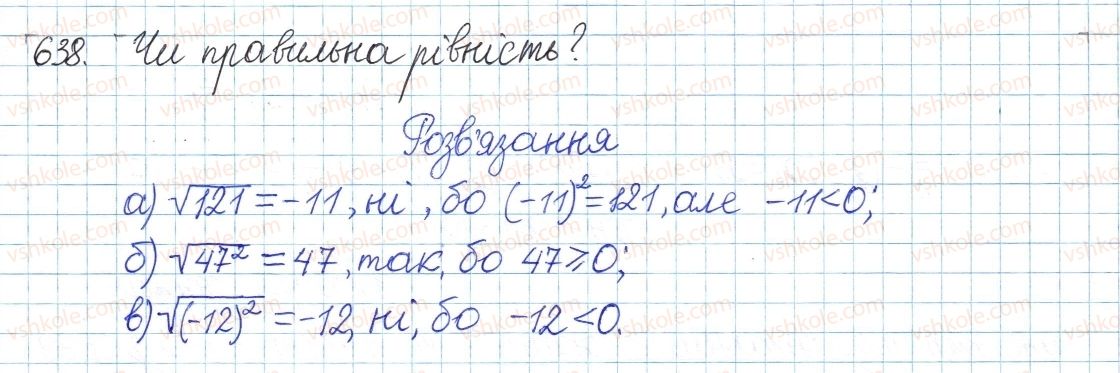 638. Чи правильна рівність?
Розв'язання
а) √121 = -11, ні, бо (-11)² = 121, але -11 < 0;
б) √47² = 47, так, бо 47 ⩾ 0;
в) √(-12)² = -12, ні, бо -12 < 0.